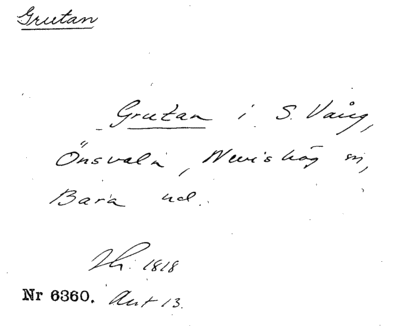 Grutan
Grutan i S. Vång,
Önsvala, Nevishög sn,
Bara hd.
1818
Nr 6360. Akt 13.